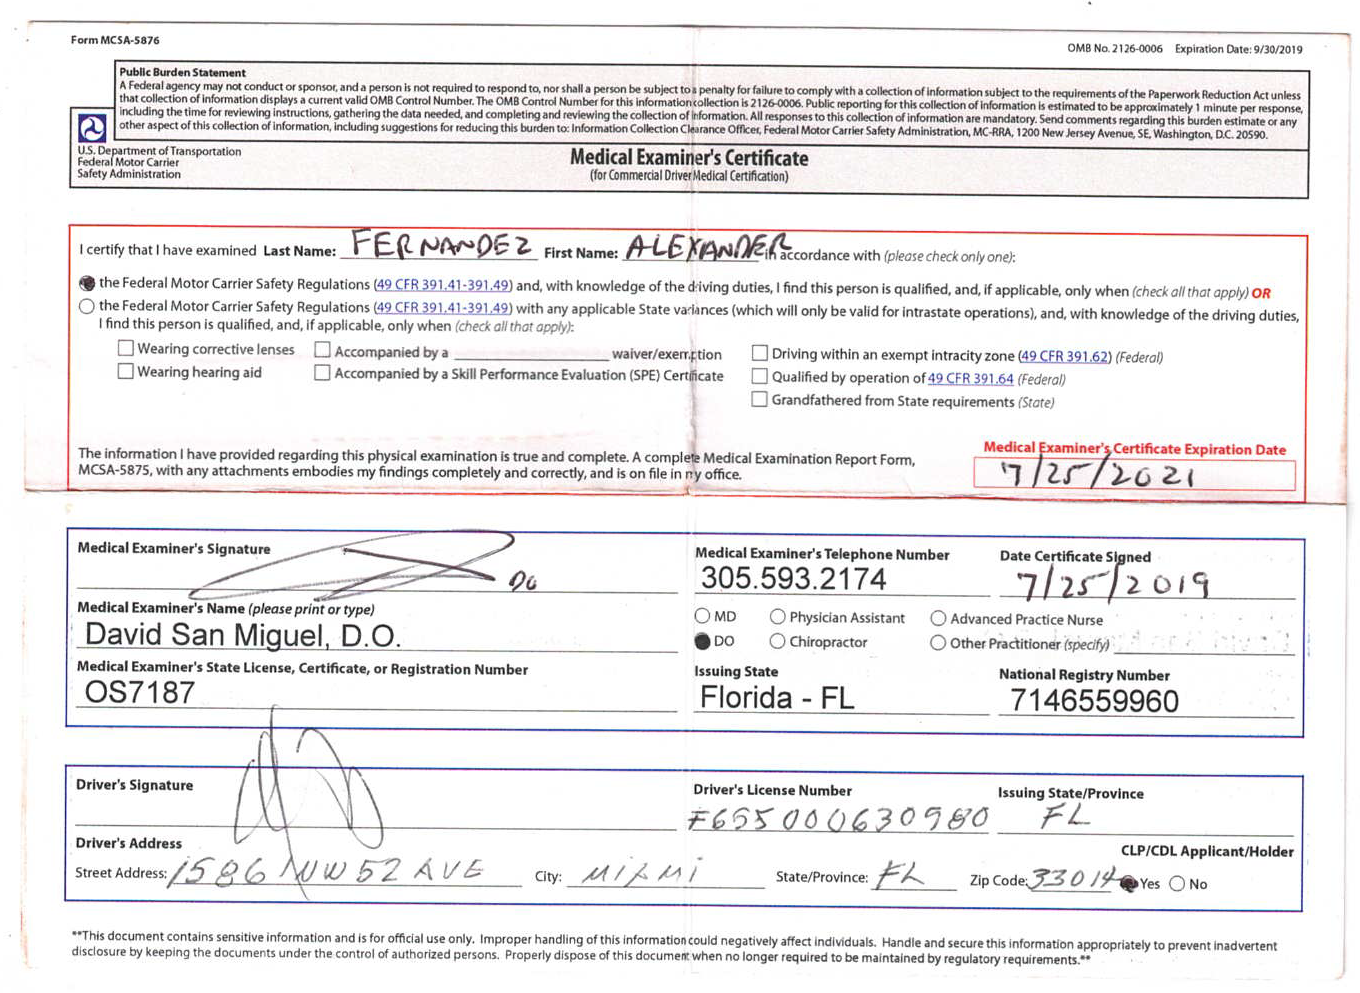 Form MCSA-5876
OMB No. 2126-0006 Expiration Date: 9/30/2019
Public Burden Statement
A Federal agency may not conduct or sponsor, and a person is not required to respond to, nor shall a person be subject to a penalty for failure to comply with a collection of information subject to the requirements of the Paperwork Reduction Act unless
that collection of information displays a current valid OMB Control Number. The OMB Control Number for this information collection is 2126-0006. Public reporting for this collection of information is estimated to be approximately 1 minute per response,
including the time for reviewing instructions, gathering the data needed, and completing and reviewing the collection of information. All responses to this collection of information are mandatory. Send comments regarding this burden estimate or any
other aspect of this collection of information, including suggestions for reducing this burden to: Information Collection Clearance Officer, Federal Motor Carrier Safety Administration, MC-RRA, 1200 New Jersey Avenue, SE, Washington, D.C. 20590.
U.S. Department of Transportation
Federal Motor Carrier
Safety Administration
Medical Examiner's Certificate
(for Commercial Driver Medical Certification)
I certify that I have examined Last Name: FERNANDEZ First Name: ALEXANDER in accordance with (please check only one):
the Federal Motor Carrier Safety Regulations (49 CFR 391.41-391.49) and, with knowledge of the driving duties, I find this person is qualified, and, if applicable, only when (check all that apply) OR
the Federal Motor Carrier Safety Regulations (49 CFR 391.41-391.49) with any applicable State variances (which will only be valid for intrastate operations), and, with knowledge of the driving duties,
I find this person is qualified, and, if applicable, only when (check all that apply):
Wearing corrective lenses Accompanied by a waiver/exemption Driving within an exempt intracity zone (49 CFR 391.62) (Federal)
Wearing hearing aid Accompanied by a Skill Performance Evaluation (SPE) Certificate Qualified by operation of 49 CFR 391.64 (Federal)
Grandfathered from State requirements (State)
The information I have provided regarding this physical examination is true and complete. A complete Medical Examination Report Form,
MCSA-5875, with any attachments embodies my findings completely and correctly, and is on file in my office.
Medical Examiner's Certificate Expiration Date
7/25/2021
Medical Examiner's Signature Medical Examiner's Telephone Number Date Certificate Signed
DO 305.593.2174 7/25/2019
Medical Examiner's Name (please print or type) MD Physician Assistant Advanced Practice Nurse
David San Miguel, D.O. DO Chiropractor Other Practitioner (specify)
Medical Examiner's State License, Certificate, or Registration Number Issuing State National Registry Number
OS7187 Florida - FL 7146559960
Driver's Signature Driver's License Number Issuing State/Province
F655000630980 FL
Driver's Address CLP/CDL Applicant/Holder
Street Address: 1586 NW 52 AVE City: MIAMI State/Province: FL Zip Code: 33014 Yes No
**This document contains sensitive information and is for official use only. Improper handling of this information could negatively affect individuals. Handle and secure this information appropriately to prevent inadvertent
disclosure by keeping the documents under the control of authorized persons. Properly dispose of this document when no longer required to be maintained by regulatory requirements.**